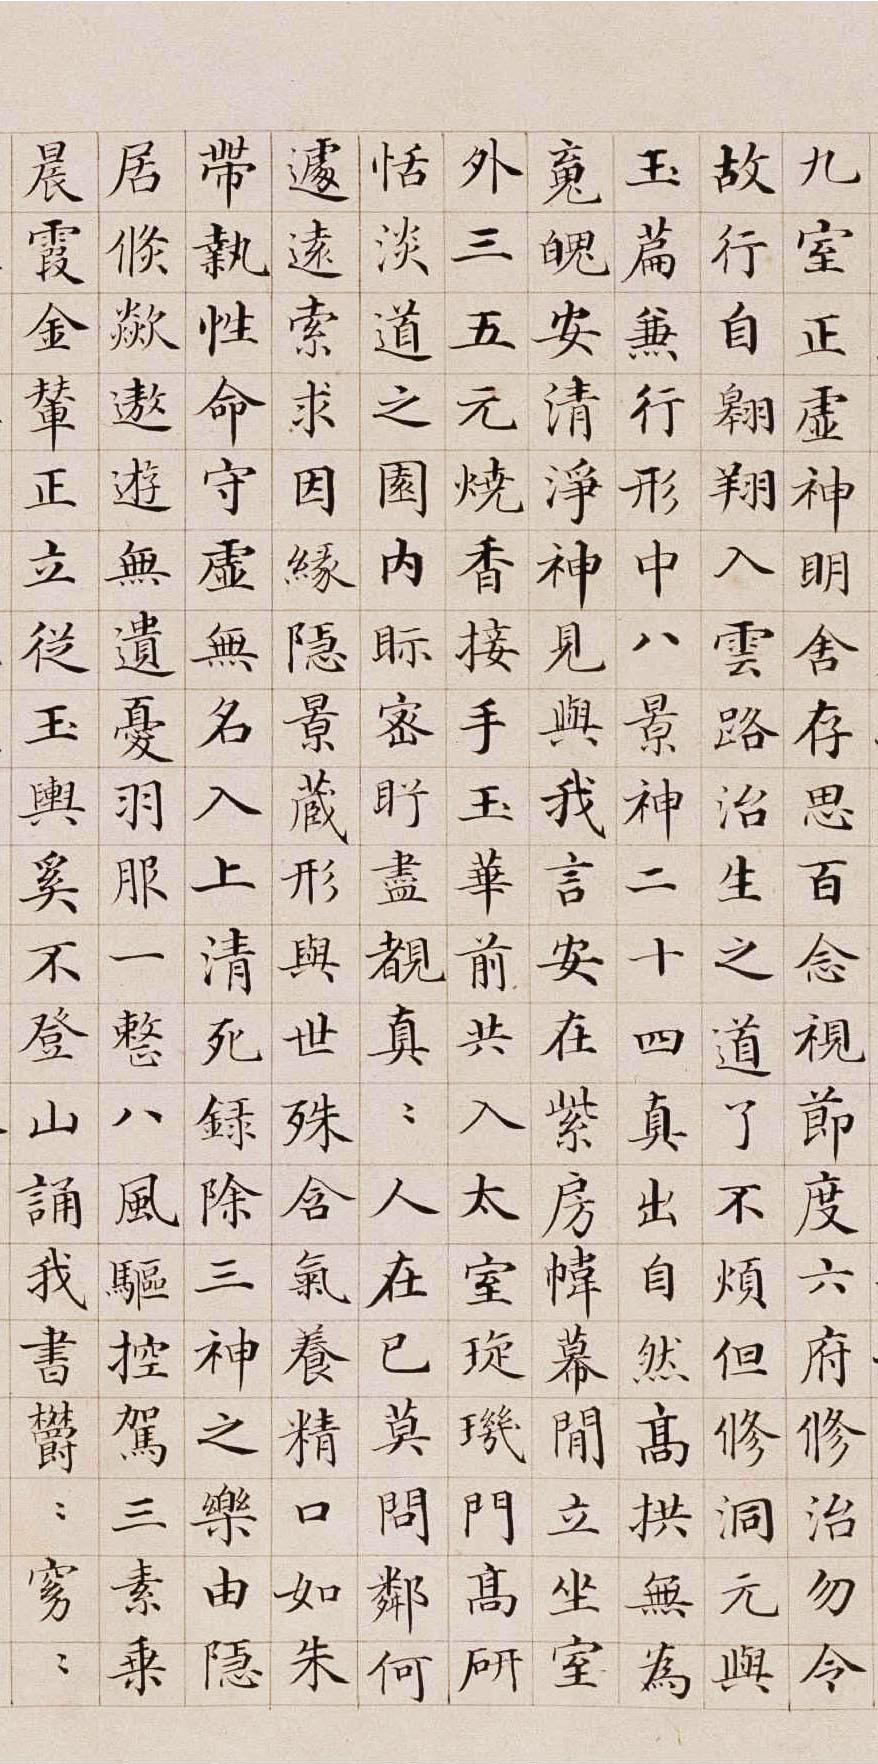 九室正虛神明舍存思百念視節度六府修治勿令
故行自翱翔入雲路治生之道了不煩但修洞元與
玉篇兼行形中八景神二十四真出自然髙拱無為
䰟魄安清淨神見與我言安在紫房幃幕閒立坐室
外三五元燒香接手玉華前共入太室琁璣門髙研
恬淡道之園內眎密盻盡覩真〻人在已莫問鄰何
遽遠索求因緣隠景蔵形與世殊含氣養精口如朱
帶執性命守虛無名入上清死録除三神之樂由隠
居倏歘遨遊無遺憂羽服一整八風驅控駕三素乗
晨霞金輦正立從玉輿奚不登山誦我書欝〻窈〻